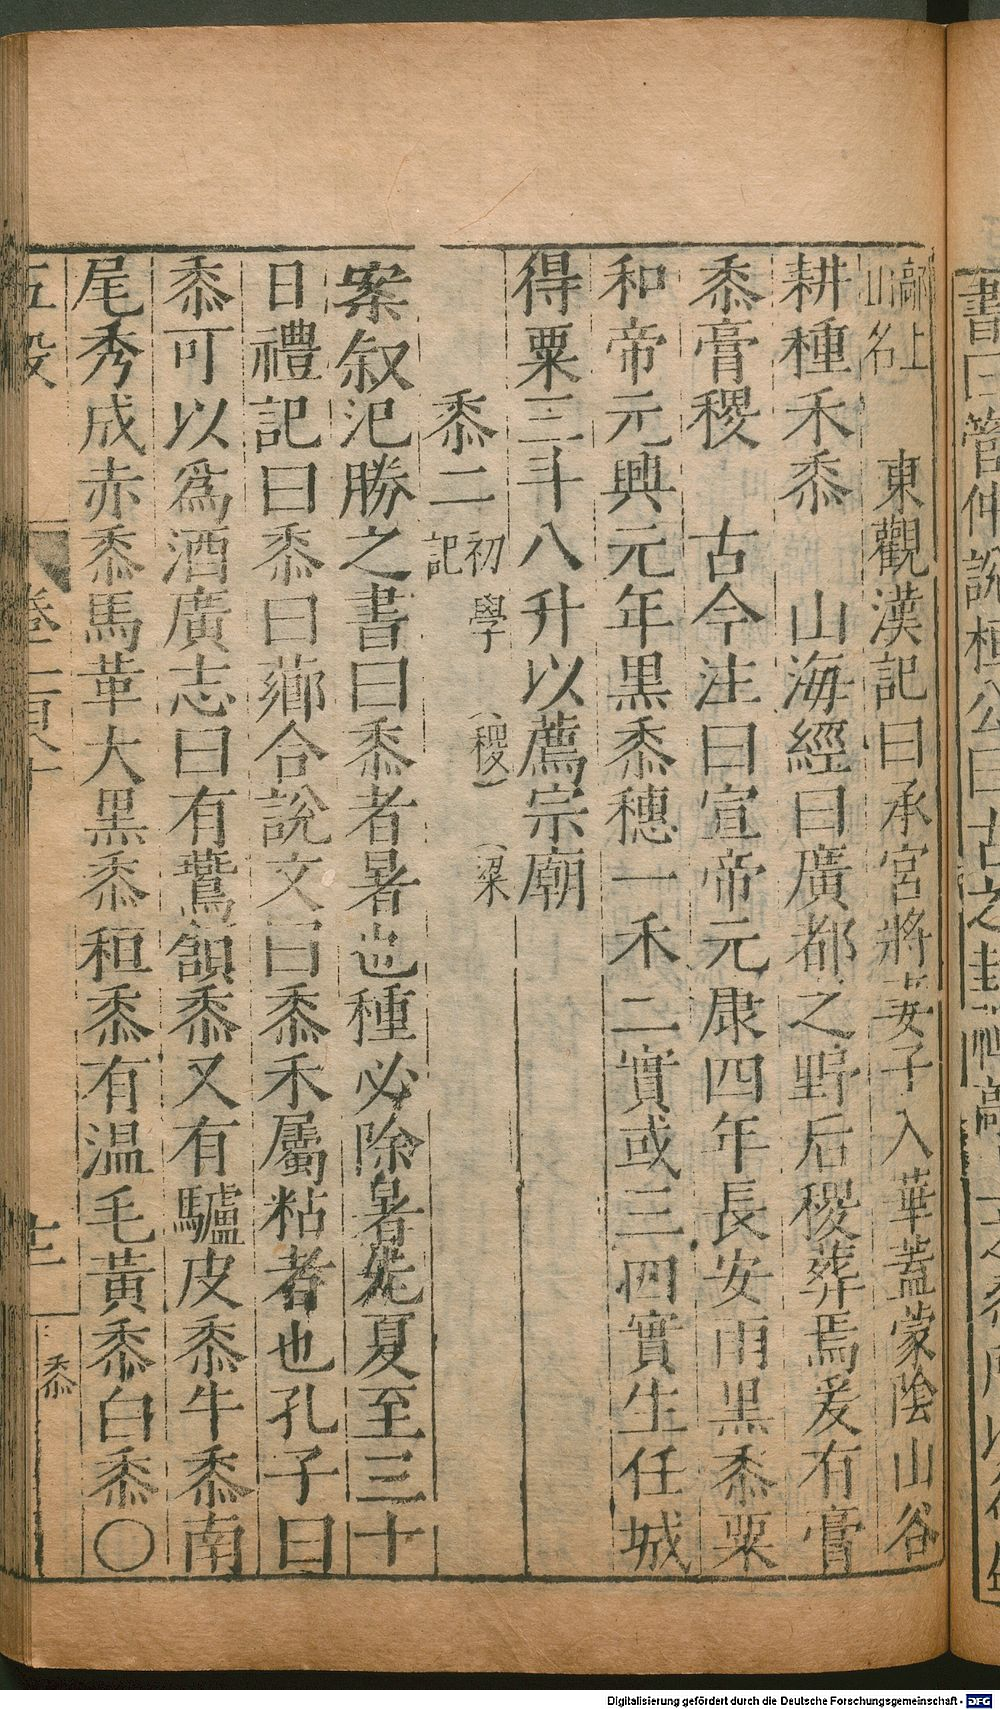 書曰管仲說桓公曰古之封禪鄗上之黍所以
鄗上
山名
東觀漢記曰承宮將妻子入華蓋蒙陰山谷
耕種禾黍　山海經曰廣都之野后稷葬焉爰有膏
黍膏稷　古今注曰宣帝元康四年長安雨黑黍粟
和帝元興元年黑黍穗一禾二實或三四實生任城
得粟三斗八升以薦宗廟
黍二 初學記（稷）（粱
案叙氾勝之書曰黍者暑也種必除暑先夏至三十
日禮記曰黍曰薌合說文曰黍禾屬粘者也孔子曰
黍可以爲酒廣志曰有鷰頷黍又有驢皮黍牛黍南
尾秀成赤黍馬革大黑黍秬黍有温毛黃黍白黍○
五穀 黍
Digitalisierung gefördert durch die Deutsche Forschungsgemeinschaft - DFG